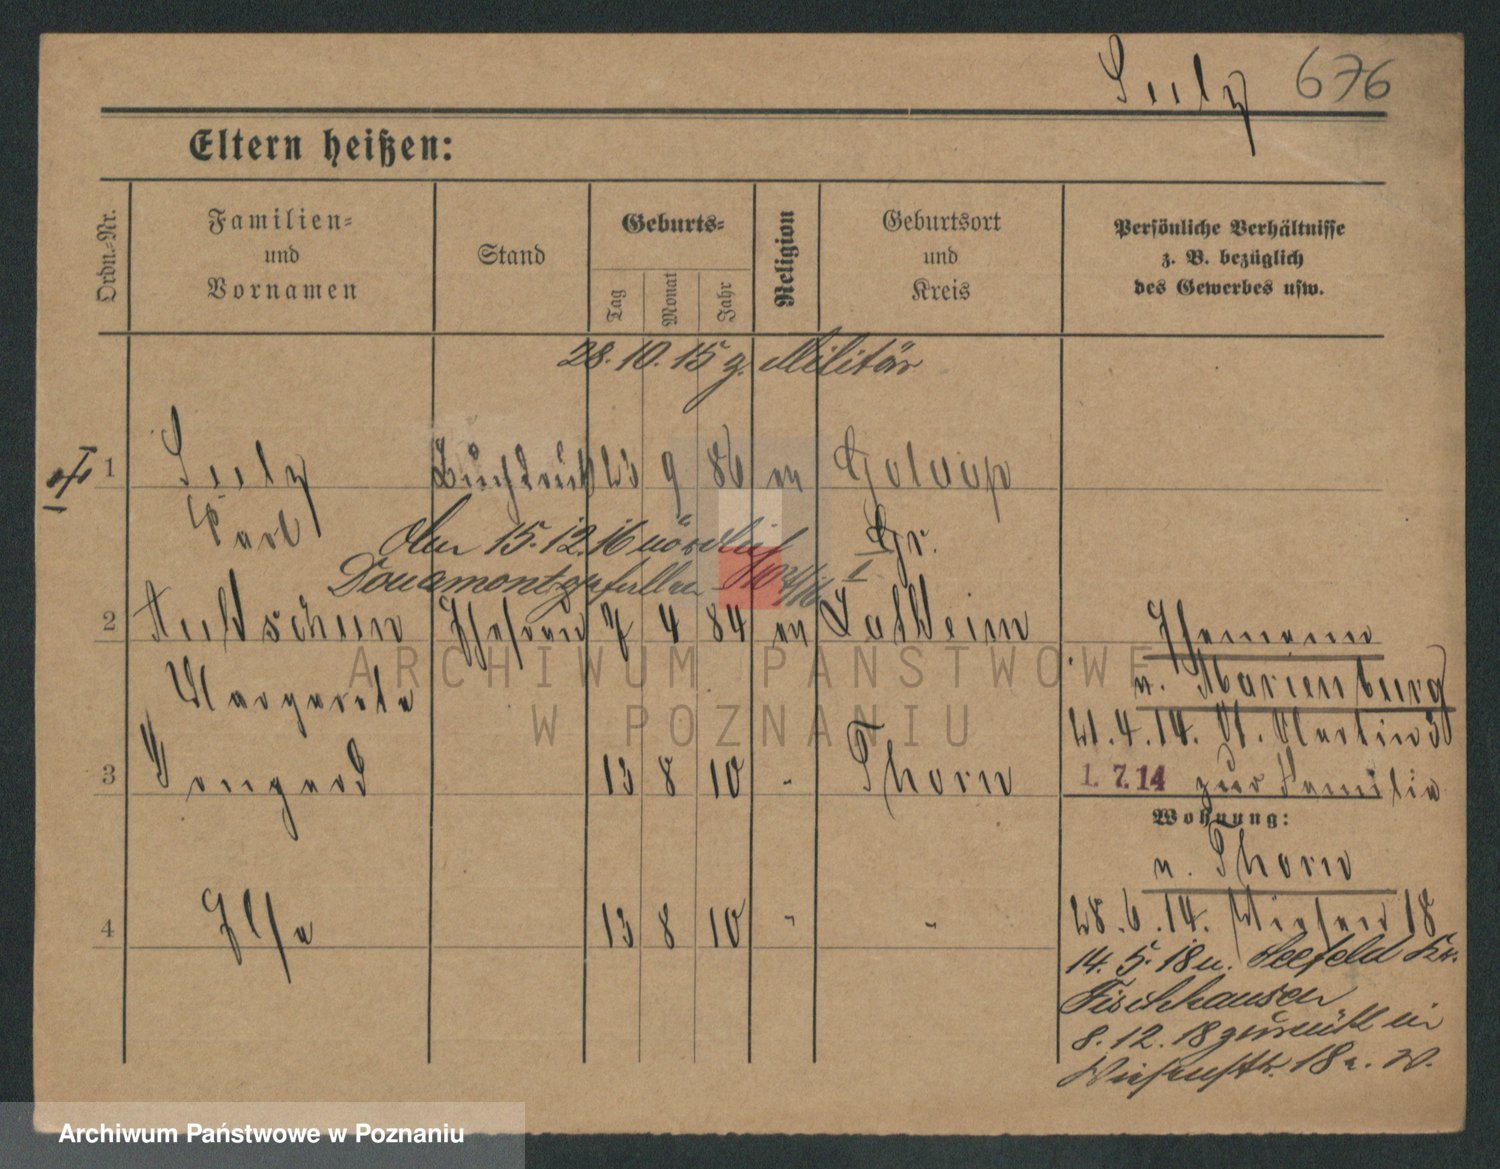 Seelz 676
Eltern heißen:
Ordn.-Nr.
Familien-
und
Vornamen
Stand
Geburts-
Tag
Monat
Jahr
Religion
Geburtsort
und
Kreis
Persönliche Verhältnisse
z. B. bezüglich
des Gewerbes usw.
28. 10. 15 z. Militär
1 Seelz 23 9 86 ev Goldap
Karl
Am 15. 12. 16 nördlich
Douamont gefallen
2 Ehefrau 7 4 84 ev
Margarete
3 Irmgard 13 8 10 " Thorn
4 Ilse 13 8 10 " "
Ehemann
n. Marienburg
21. 4. 14. St. Martin 30
1. 7. 14 zur Familie
Wohnung:
v. Thorn
28. 6. 14. Wiesen 18
14. 5. 18 n. Seefeld Kr.
Fischhausen
8. 12. 18 zurück in
Wiesenstr. 18 b. W.
ARCHIWUM PAŃSTWOWE
W POZNANIU
Archiwum Państwowe w Poznaniu